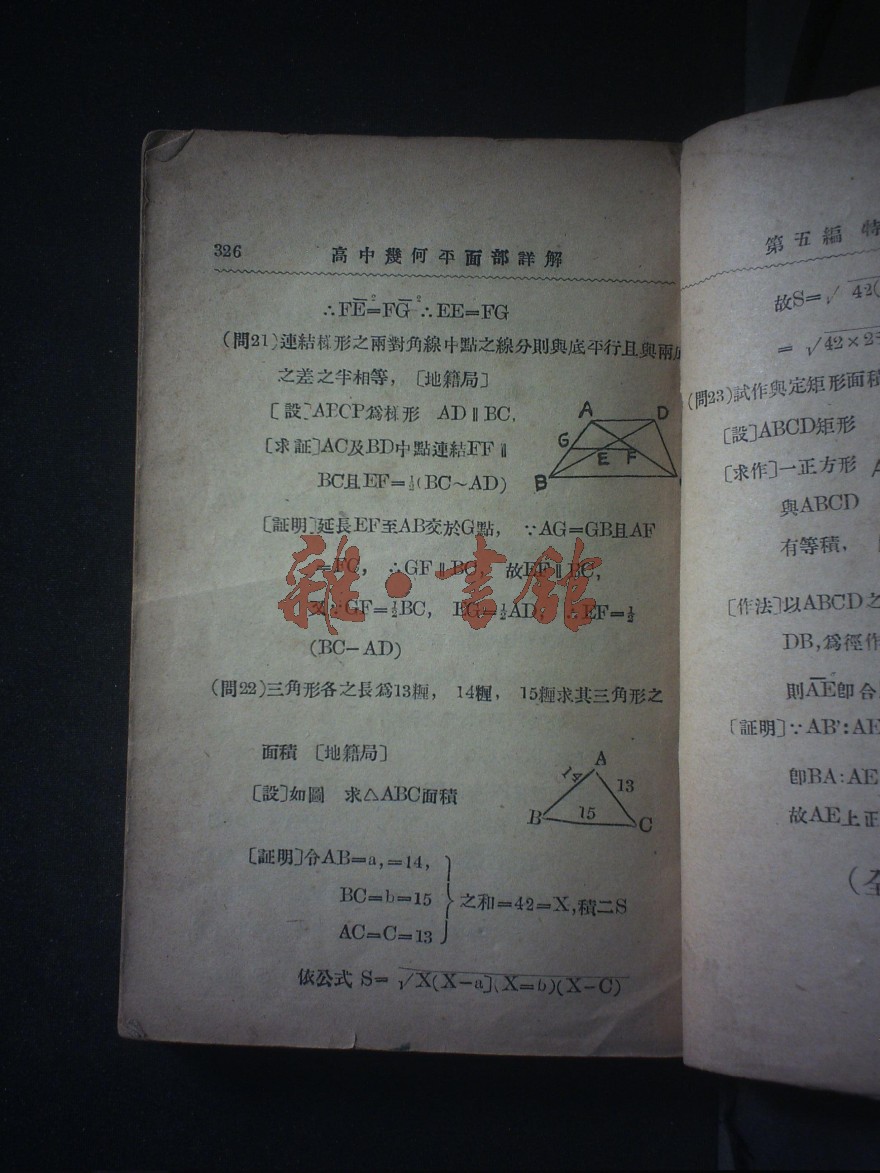 326 高中幾何平面部詳解
∴FE²=FG² ∴EE=FG
(問21)連結梯形之兩對角線中點之線分則與底平行且與兩底
之差之半相等，〔地籍局〕
〔設〕ABCP爲梯形 AD∥BC,
〔求証〕AC及BD中點連結FF∥
BC且EF=½(BC～AD)
A D G E F B
〔証明〕延長EF至AB交於G點， ∵AG=GB且AF
=FC， ∴GF∥BC， 故EF∥BC，
又∵GF=½BC， EG=½AD， ∴EF=½
(BC−AD)
(問22)三角形各之長爲13糎， 14糎， 15糎求其三角形之
面積 〔地籍局〕
〔設〕如圖 求△ABC面積
A 14 13 15 B C
〔証明〕令AB=a,=14,
BC=b=15 之和=42=X,積二S
AC=C=13
依公式 S=√X(X−a](X=b)(X−C)
雜·書館
第五編 特
故S=√42(
=√42×2
(問23)試作與定矩形面積
〔設〕ABCD矩形
〔求作〕一正方形
與ABCD
有等積，
〔作法〕以ABCD之
DB,爲徑作
則AE即合
〔証明〕∵AB':AE
即BA:AE
故AE上正